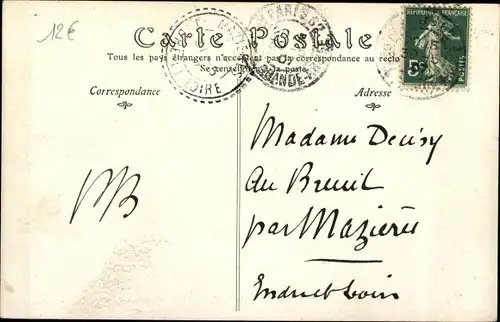 12€
Carte Postale
Tous les pays étrangers n'acceptent pas la correspondance au recto
Se renseigner à la poste.
Correspondance
Adresse
RÉPUBLIQUE FRANÇAISE
5c
POSTES
LOIRE
GRANDE
MB
Madame Denisy
Au Breuil
par Mazières
Indre et Loire